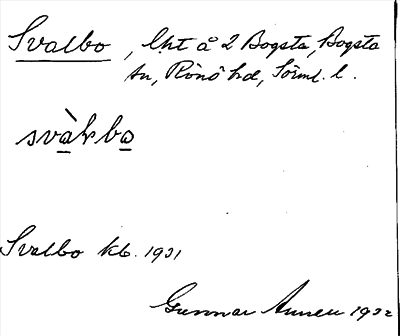 Svalbo, lht å 2 Bogsta, Bogsta
sn, Rönö hd, Sörml. l.
svàlbo
Svalbo kb. 1931
Gunnar 1932